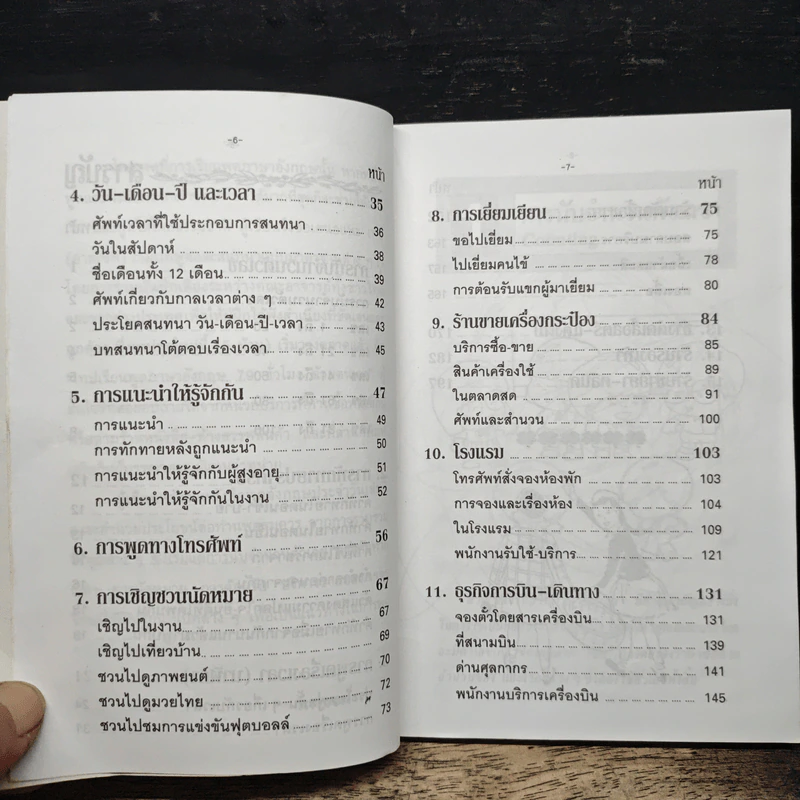 -6-
หน้า
4. วัน-เดือน-ปี และเวลา 35
ศัพท์เวลาที่ใช้ประกอบการสนทนา 36
วันในสัปดาห์ 38
ชื่อเดือนทั้ง 12 เดือน 39
ศัพท์เกี่ยวกับกาลเวลาต่าง ๆ 42
ประโยคสนทนา วัน-เดือน-ปี-เวลา 43
บทสนทนาโต้ตอบเรื่องเวลา 45
5. การแนะนำให้รู้จักกัน 47
การแนะนำ 49
การทักทายหลังถูกแนะนำ 50
การแนะนำให้รู้จักกับผู้สูงอายุ 51
การแนะนำให้รู้จักกันในงาน 52
6. การพูดทางโทรศัพท์ 56
7. การเชิญชวนนัดหมาย 67
เชิญไปในงาน 67
เชิญไปเที่ยวบ้าน 69
ชวนไปดูภาพยนต์ 70
ชวนไปดูมวยไทย 72
ชวนไปชมการแข่งขันฟุตบอลล์ 73
-7-
หน้า
8. การเยี่ยมเยียน 75
ขอไปเยี่ยม 75
ไปเยี่ยมคนไข้ 78
การต้อนรับแขกผู้มาเยี่ยม 80
9. ร้านขายเครื่องกระป๋อง 84
บริการซื้อ-ขาย 85
สินค้าเครื่องใช้ 89
ในตลาดสด 91
ศัพท์และสำนวน 100
10. โรงแรม 103
โทรศัพท์สั่งจองห้องพัก 103
การจองและเรื่องห้อง 104
ในโรงแรม 109
พนักงานรับใช้-บริการ 121
11. ธุรกิจการบิน-เดินทาง 131
จองตั๋วโดยสารเครื่องบิน 131
ที่สนามบิน 139
ด่านศุลกากร 141
พนักงานบริการเครื่องบิน 145